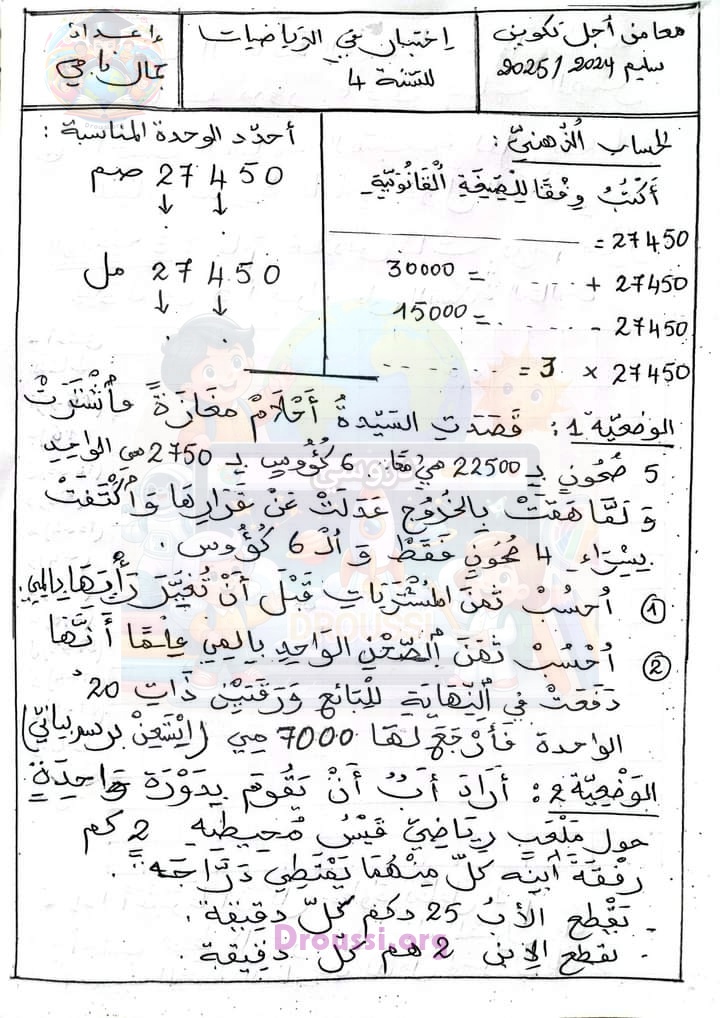 معا من أجل تكوين
سليم 2024 / 2025
إختبار في الرياضيات
للسنة 4
إعداد
الحساب الذّهنيّ :
أَكْتُبُ وِفْقًا لِلصِّيغَةِ الْقَانُونِيَّةِ
27450 = ــــــــ ــــــــ
27450 + ..... = 30000
27450 - ..... = 15000
27450 × 3 = ......
أحدّد الوحدة المناسبة :
27 450 صم
↓ ↓
. .
27 450 مل
↓ ↓
. .
الوضعيّة 1 : قَصَدَتِ السَيّدةُ أَحْلَامْ مَغَازَةً فٱشْتَرَتْ
5 صُحُونٍ بِـ 22500 مي معًا. و 6 كُؤُوسٍ بِـ 2750 مي الواحِد
وَ لَمَّا هَمَّتْ بِالخُرُوجِ عَدَلَتْ عَنْ قَرَارِهَا وَ ٱكْتَفَتْ
بِشِرَاءِ 4 صُحُونٍ فَقَطْ وَ الْـ 6 كُؤُوس .
① اُحْسُبْ ثَمَنَ المُشْتَرَيَاتِ قَبْلَ أَنْ تُغَيِّرَ رَأْيَهَا بِالمي.
② اُحْسُبْ ثَمَنَ الصَّحْنِ الوَاحِدِ بِالمي عِلْمًا أَنَّهَا
دَفَعَتْ فِي النِّهَايَةِ لِلْبَائِعِ وَرَقَتَيْنِ ذَاتِ 20 د
الواحدة فَأَرْجَعَ لَهَا 7000 مي
الوَضْعِيّة 2 : أَرَادَ أَبٌ أَنْ يَقُومَ بِدَوْرَةٍ وَاحِدَةٍ
حول مَلْعَبٍ رِيَاضِيّ قَيْسُ مُحِيطِهِ 2 كم
رِفْقَةَ ٱبْنِهِ كُلٌّ مِنْهُمَا يَمْتَطِي دَرَّاجَة .
. يَقْطَع الأَبُ 25 دكم كُلّ دقِيقة .
. يقطع الإبن 2 هم كُلّ دَقِيقة .
دروسي
DROUSSI
Droussi.org